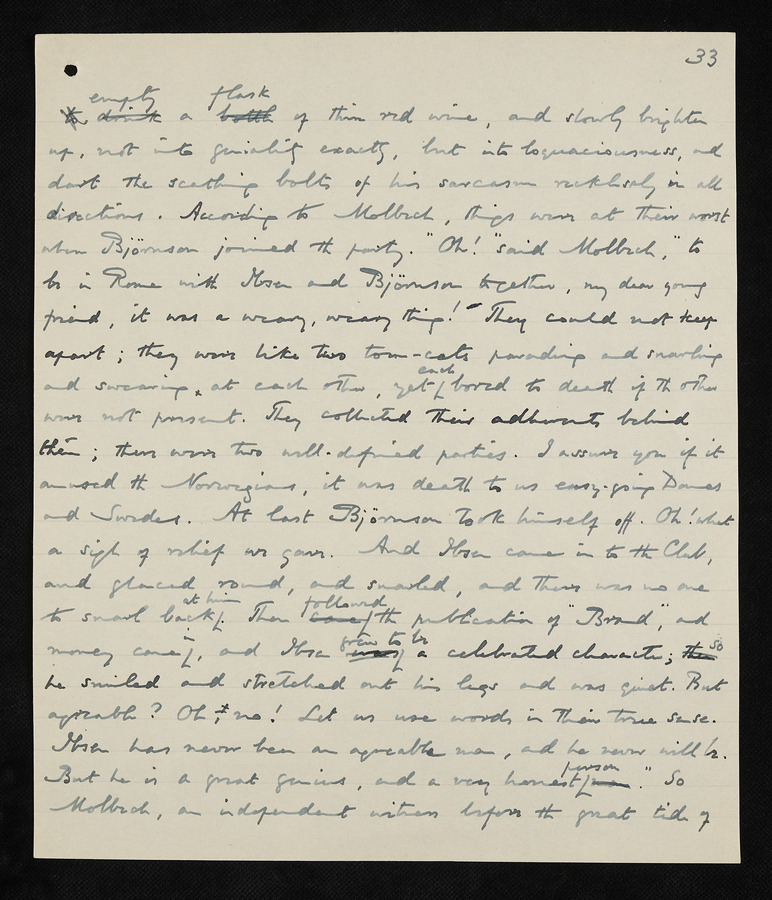 33
empty flask
to drink a bottle of thin red wine, and slowly brighten
up, not into geniality exactly, but into loquaciousness, and
dart the scathing bolts of his sarcasm recklessly in all
directions. According to Molbech, things were at their worst
when Björnson joined the party. "Oh!" said Molbech, "to
be in Rome with Ibsen and Björnson together, my dear young
friend, it was a weary, weary thing!" They could not keep
apart; they were like two tom-cats parading and snarling
each
and swearing at each other, yet bored to death if the other
were not present. They collected their adherents behind
them; there were two well-defined parties. I assure you if it
amused the Norwegians, it was death to us easy-going Danes
and Swedes. At last Björnson took himself off. Oh! what
a sigh of relief we gave. And Ibsen came in to the Club,
and glanced round, and snarled, and there was no one
at him followed
to snarl back. Then came the publication of "Brand", and
in grew to be so
money came, and Ibsen was a celebrated character; then
he smiled and stretched out his legs and was quiet. But
agreable? Oh, no! Let us use words in their true sense.
Ibsen has never been an agreable man, and he never will be.
person
But he is a great genius, and a very honest man." So
Molbech, an independent witness before the great tide of